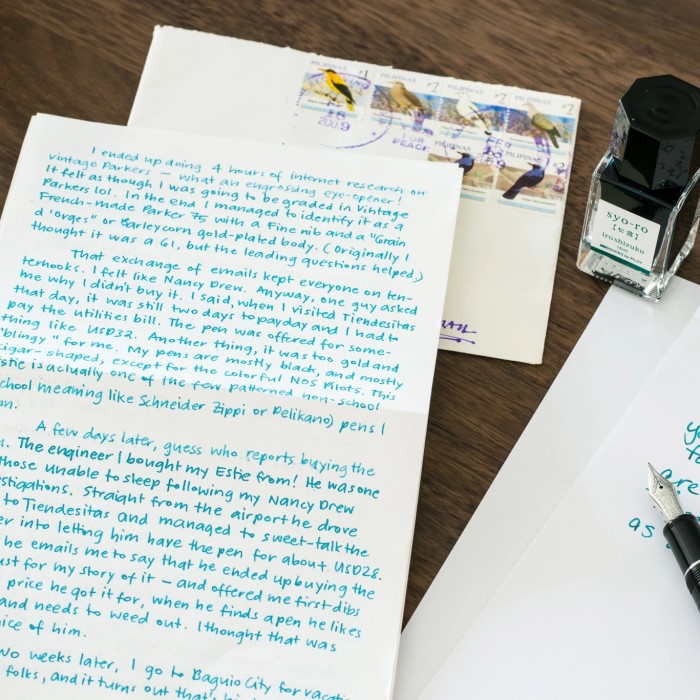 I ended up doing 4 hours of internet research on
vintage Parkers — what an engrossing eye-opener!
It felt as though I was going to be graded in Vintage
Parkers lol. In the end I managed to identify it as a
French-made Parker 75 with a Fine nib and a "Grain
d'Orges" or Barleycorn gold-plated body. (Originally I
thought it was a 61, but the leading questions helped.)
That exchange of emails kept everyone on ten-
terhooks. I felt like Nancy Drew. Anyway, one guy asked
me why I didn't buy it. I said, when I visited Tiendesitas
that day, it was still two days to payday and I had to
pay the utilities bill. The pen was offered for some-
thing like USD32. Another thing, it was too gold and
"blingy" for me. My pens are mostly black, and mostly
cigar-shaped, except for the colorful NOS Pilots. This
Estie is actually one of the few patterned non-school
school meaning like Schneider Zippi or Pelikano) pens I
A few days later, guess who reports buying the
The engineer I bought my Estie from! He was one
those unable to sleep following my Nancy Drew
stigations. Straight from the airport he drove
to Tiendesitas and managed to sweet-talk the
er into letting him have the pen for about USD28.
he emails me to say that he ended up buying the
ust for my story of it — and offered me first dibs
price he got it for, when he finds a pen he likes
and needs to weed out. I thought that was
ice of him.
wo weeks later, I go to Baguio City for vacati
folks, and it turns out that
PILIPINAS
PILIPINAS
PILIPINAS
PILIPINAS
PILIPINAS
FOR
PEACE
2009
syo-ro
iroshizuku
are
as